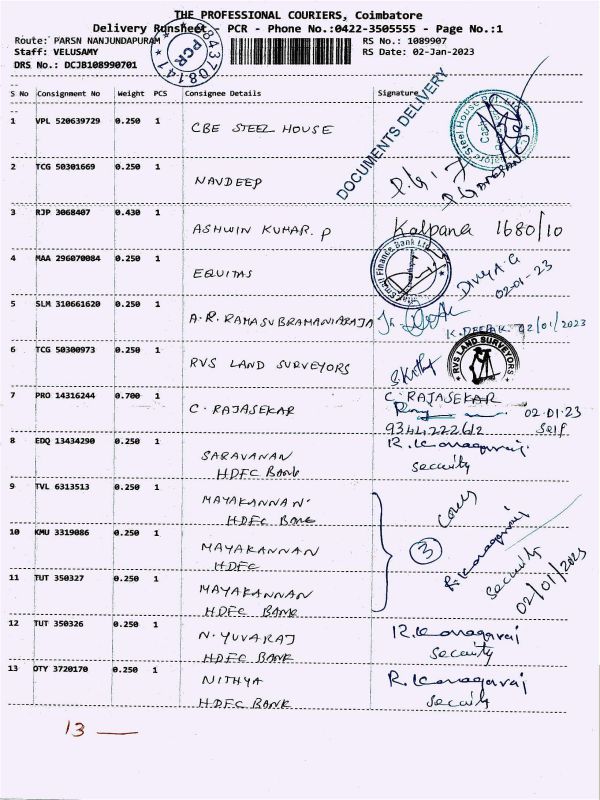 THE PROFESSIONAL COURIERS, Coimbatore
Delivery Runsheet PCR - Phone No.:0422-3505555 - Page No.:1
Route: PARSN NANJUNDAPURAM
RS No.: 1089907
Staff: VELUSAMY
RS Date: 02-Jan-2023
DRS No.: DCJB108990701
PCR
DOCUMENTS DELIVERY
S No Consignment No Weight PCS Consignee Details Signature
1 VPL 520639729 0.250 1 CBE STEEL HOUSE
2 TCG 50301669 0.250 1 NAVDEEP
3 RJP 3068407 0.430 1 ASHWIN KUMAR. P Kalpana 1680/10
4 MAA 296070084 0.250 1 EQUITAS
Divya.G
02-01-23
5 SLM 310661620 0.250 1 A.R. RAMASUBRAMANIARAJA
K.DEEPAK 02/01/2023
6 TCG 50300973 0.250 1 RVS LAND SURVEYORS
RVS LAND SURVEYORS
7 PRO 14316244 0.700 1 C. RAJASEKAR C. RAJASEKAR
02.01.23
9344222612 Self
8 EDQ 13434290 0.250 1 SARAVANAN R. Kanagaraj
HDFC BANK security
9 TVL 6313513 0.250 1 MAYAKANNAN
HDFC BANK
10 KMU 3319086 0.250 1 MAYAKANNAN
HDFC
3
R. Kanagaraj
security
02/01/2023
11 TUT 350327 0.250 1 MAYAKANNAN
HDFC BANK
12 TUT 350326 0.250 1 N. YUVARAJ R. Kanagaraj
HDFC BANK security
13 OTY 3720170 0.250 1 NITHYA R. Kanagaraj
HDFC BANK security
13